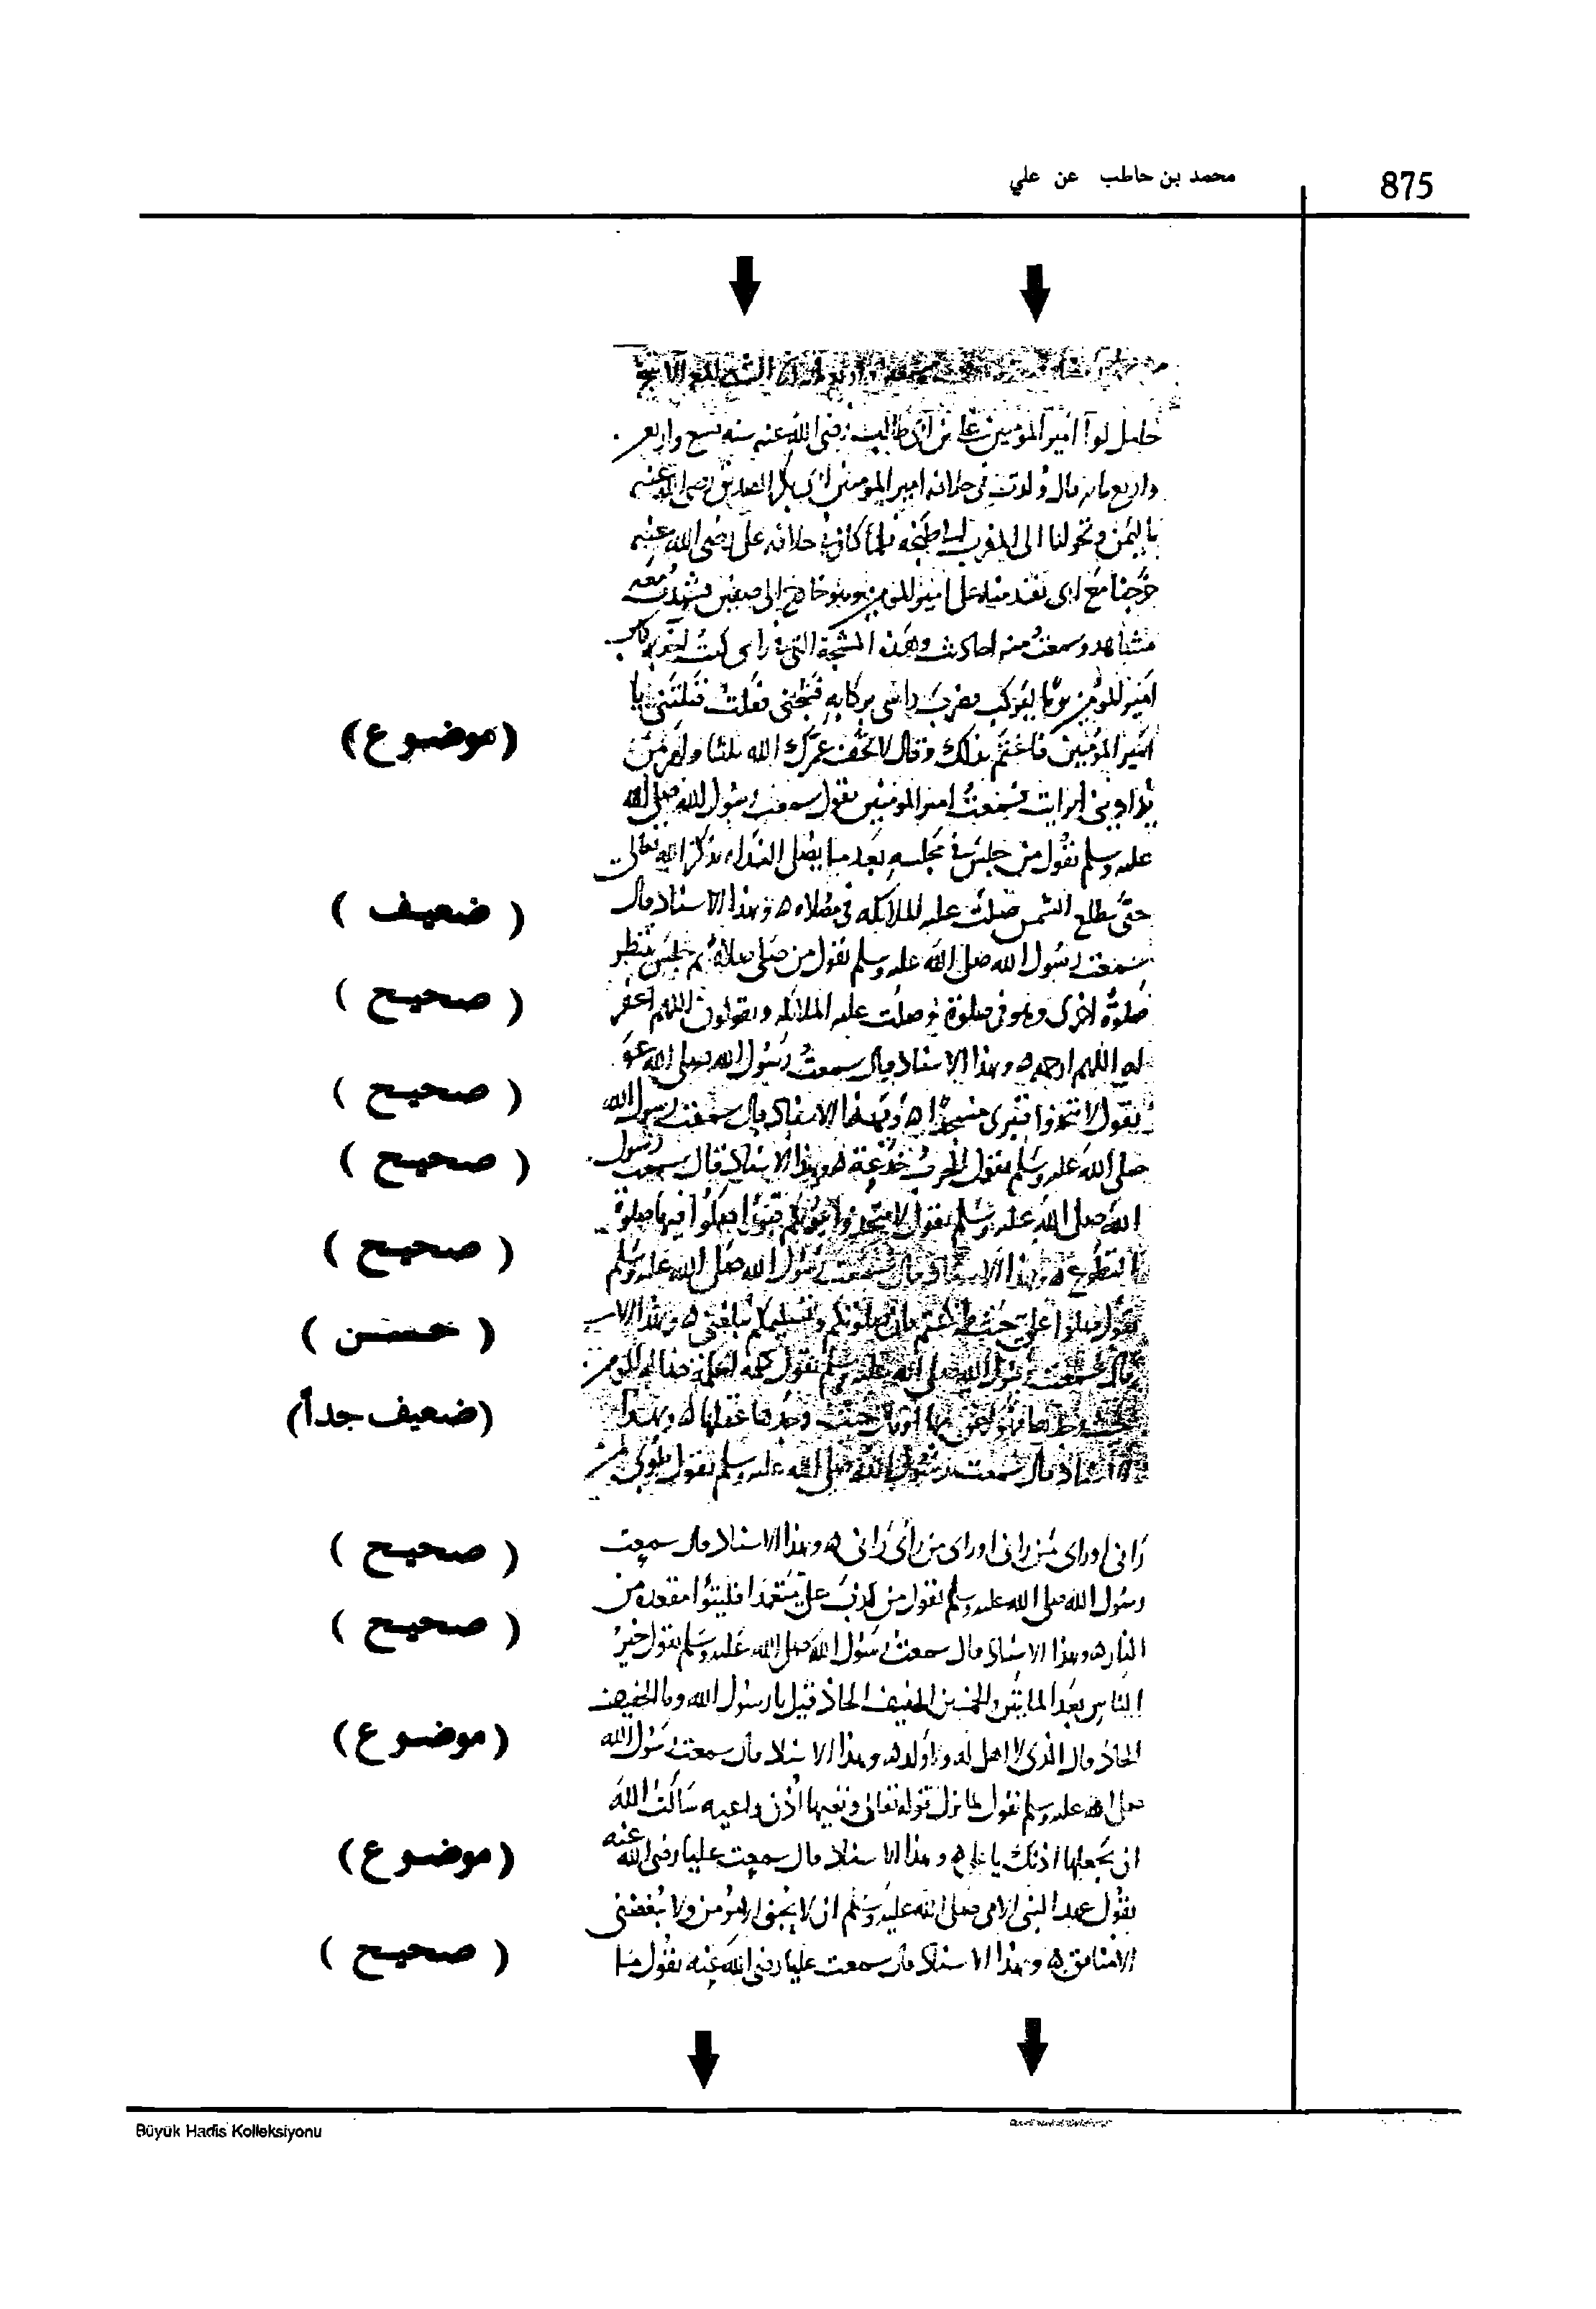 محمد بن حاطب عن علي
875
حامل لوآ امير المؤمنين علي بن ابي طالب رضي الله عنه سنه تسع واربعين
واربع مايه قال ولدت في خلافه امير المومنين ابي بكر الصديق رضي الله عنه
باليمن وتحولنا الى المغرب فلما كان في خلافه علي رضي الله عنه
خرجنا مع ابي نقدمنا على امير المؤمنين وهو خارج الى صفين فشهدت معه
مشاهد وسمعت منه احاديث وهذه الشجة التي في راسي كنت
امير المؤمنين يوما ليركب فضرب راسي بركابه فشجني فقلت قتلتني يا
امير المؤمنين فاغتم بذلك وقال لا تخف عمرك الله ثلثا
(موضوع)
فسمعت امير المومنين يقول سمعت رسول الله صلى الله
عليه وسلم يقول من جلس في مجلسه بعد ما يصلي الغداه يذكر الله تعالى
حتى تطلع الشمس صلت عليه الملائكه في مصلاه ه وبهذا الاسناد قال
( ضعيف )
سمعت رسول الله صلى الله عليه وسلم يقول من صلى صلاة ثم جلس ينتظر
صلوة اخرى وهو في صلوة صلت عليه الملائكه ويقولون اللهم اغفر
( صحيح )
له اللهم ارحمه ه وبهذا الاسناد قال سمعت رسول الله صلى الله عليه
يقول لا تتخذوا قبري مسجدا ه وبهذا الاسناد قال سمعت رسول الله
( صحيح )
صلى الله عليه وسلم يقول الحرب خدعة ه وبهذا الاسناد قال سمعت رسول
( صحيح )
الله صلى الله عليه وسلم يقول لا تتخذوا بيوتكم قبورا صلوا فيها صلوة
التطوع ه وبهذا الاسناد قال سمعت رسول الله صلى الله عليه وسلم
( صحيح )
يقول صلوا علي حيث كنتم فان صلوتكم وتسليمكم يبلغني ه وبهذا الاسناد
( حسن )
قال سمعت رسول الله صلى الله عليه وسلم يقول كلمه الحكمة ضالة المؤمن
حيث وجدها عقلها ه وبهذا
(ضعيف جداً)
الاسناد قال سمعت رسول الله صلى الله عليه وسلم يقول طوبى لمن
راني او راى من راني او راى من راى من راني ه وبهذا الاسناد قال سمعت
( صحيح )
رسول الله صلى الله عليه وسلم يقول من كذب علي متعمدا فليتبوا مقعده من
النار ه وبهذا الاسناد قال سمعت رسول الله صلى الله عليه وسلم يقول خير
( صحيح )
الناس بعد المايتين والخمسين الخفيف الحاذ قيل يا رسول الله وما الخفيف
الحاذ قال الذي لا اهل له ولا ولد ه وبهذا الاسناد قال سمعت رسول الله
(موضوع)
صلى الله عليه وسلم يقول لما نزل قوله تعالى وتعيها اذن واعيه سالت الله
ان يجعلها اذنك يا علي ه وبهذا الاسناد قال سمعت عليا رضي الله عنه
(موضوع)
يقول عهد النبي الامي صلى الله عليه وسلم ان لا يحبني الا مؤمن ولا يبغضني
الا منافق ه وبهذا الاسناد قال سمعت عليا رضي الله عنه يقول ما
( صحيح )
Büyük Hadis Kolleksiyonu